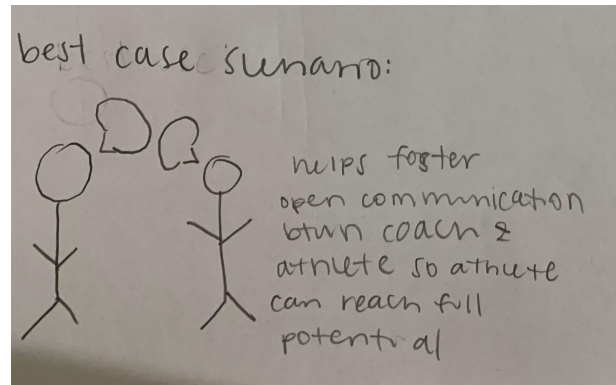 best case scenario:
helps foster
open communication
btwn coach &
athlete so athlete
can reach full
potential